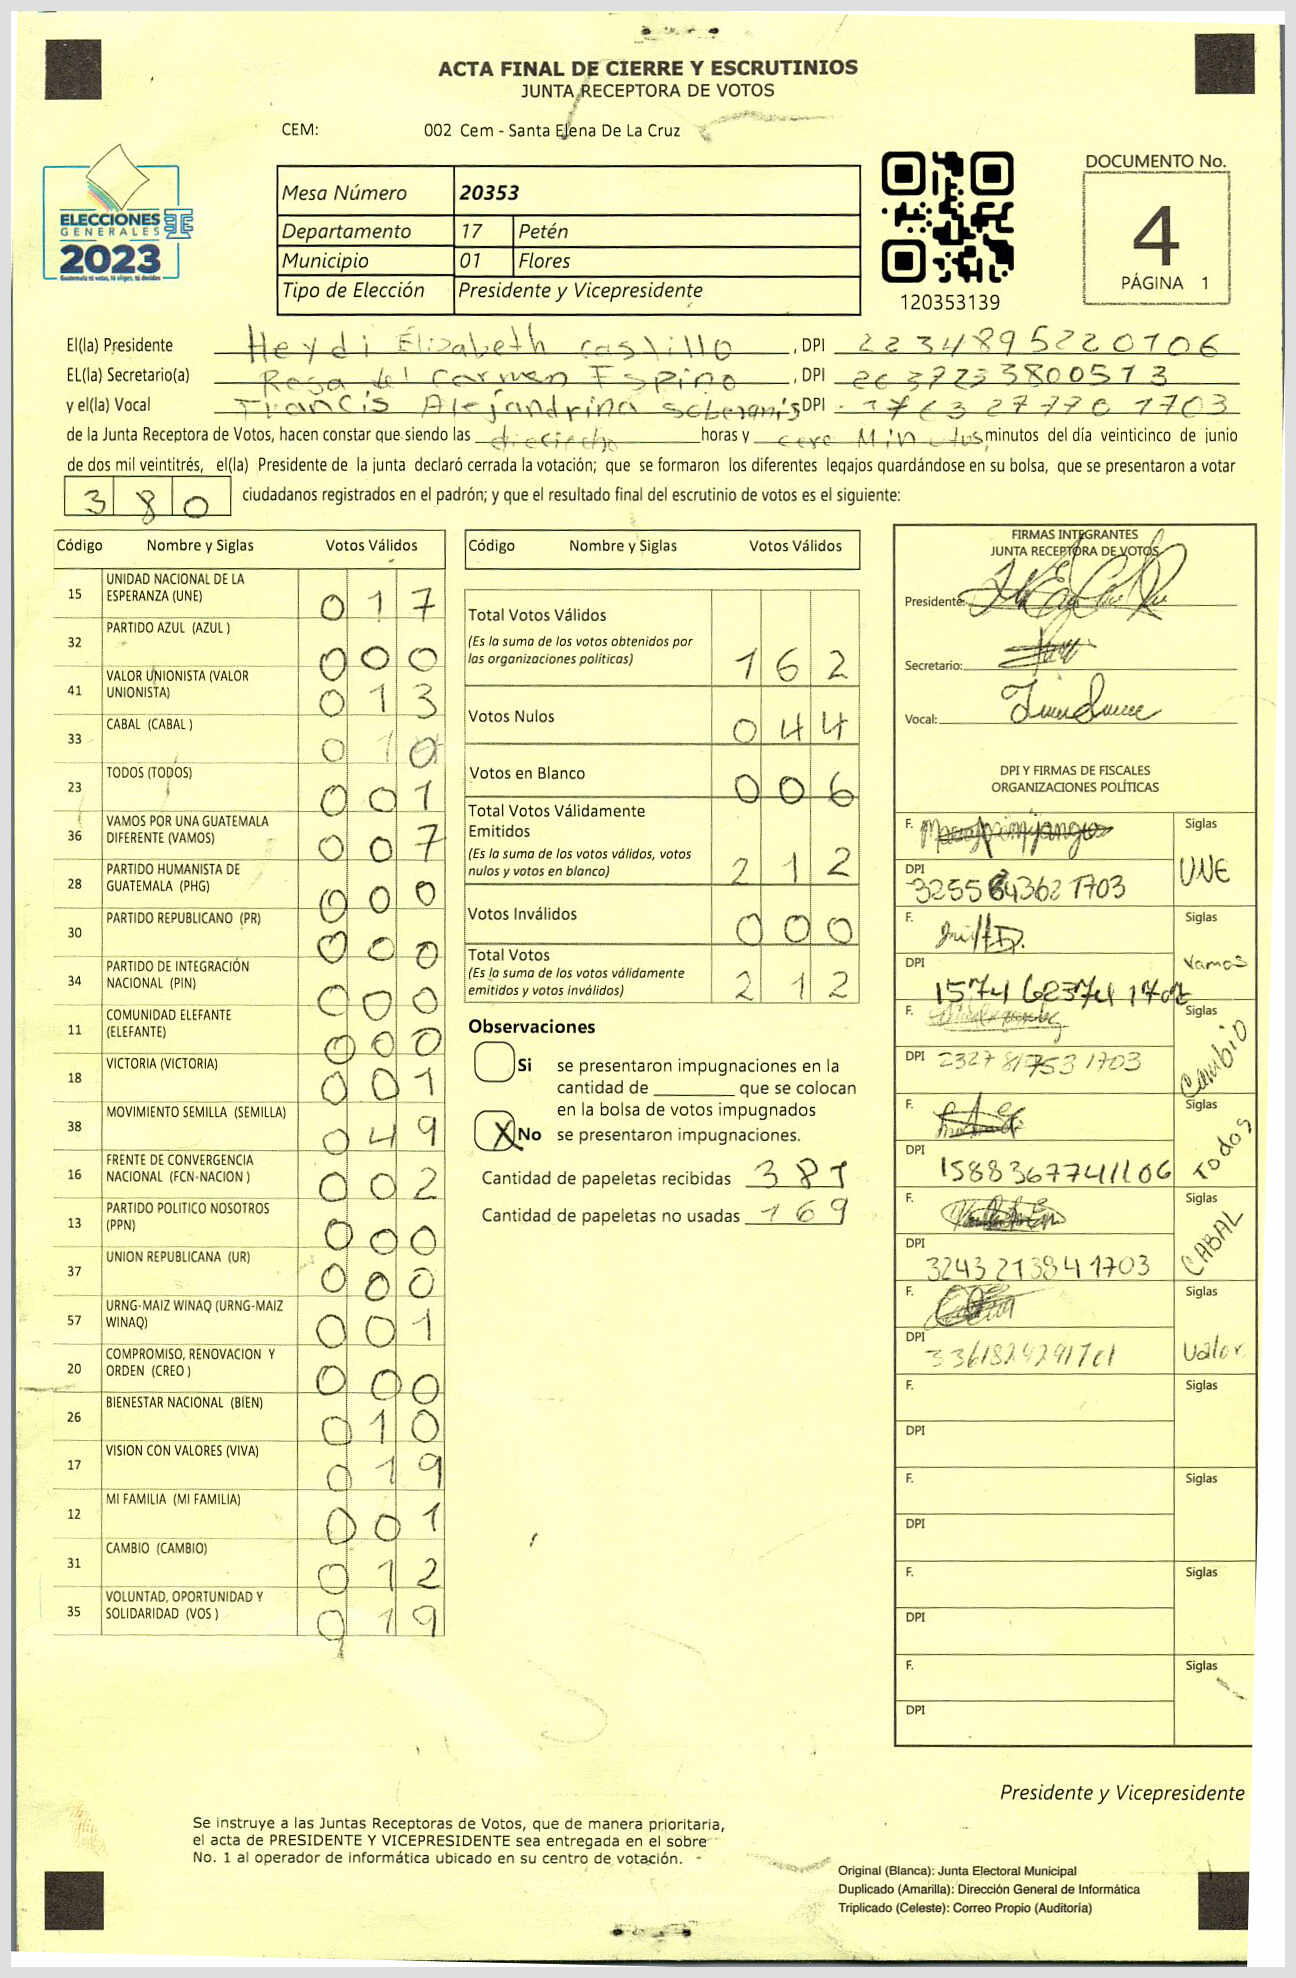 ACTA FINAL DE CIERRE Y ESCRUTINIOS
JUNTA RECEPTORA DE VOTOS
CEM: 002 Cem - Santa Elena De La Cruz
ELECCIONES
GENERALES
2023
Mesa Número 20353
Departamento 17 Petén
Municipio 01 Flores
Tipo de Elección Presidente y Vicepresidente
120353139
DOCUMENTO No.
4
PÁGINA 1
El(la) Presidente Heydi Elizabeth Castillo, DPI 2234895220106
EL(la) Secretario(a) Rosa del Carmen Espino, DPI 2637253800513
y el(la) Vocal Francis Alejandrina Soberanis DPI 1763277701703
de la Junta Receptora de Votos, hacen constar que siendo las dieciocho horas y cero Minutos, minutos del día veinticinco de junio
de dos mil veintitrés, el(la) Presidente de la junta declaró cerrada la votación; que se formaron los diferentes legajos quardándose en su bolsa, que se presentaron a votar
380 ciudadanos registrados en el padrón; y que el resultado final del escrutinio de votos es el siguiente:
Código Nombre y Siglas Votos Válidos
15 UNIDAD NACIONAL DE LA ESPERANZA (UNE) 017
32 PARTIDO AZUL (AZUL ) 000
41 VALOR UNIONISTA (VALOR UNIONISTA) 013
33 CABAL (CABAL ) 010
23 TODOS (TODOS) 001
36 VAMOS POR UNA GUATEMALA DIFERENTE (VAMOS) 007
28 PARTIDO HUMANISTA DE GUATEMALA (PHG) 000
30 PARTIDO REPUBLICANO (PR) 000
34 PARTIDO DE INTEGRACIÓN NACIONAL (PIN) 000
11 COMUNIDAD ELEFANTE (ELEFANTE) 000
18 VICTORIA (VICTORIA) 001
38 MOVIMIENTO SEMILLA (SEMILLA) 049
16 FRENTE DE CONVERGENCIA NACIONAL (FCN-NACION ) 002
13 PARTIDO POLITICO NOSOTROS (PPN) 000
37 UNION REPUBLICANA (UR) 000
57 URNG-MAIZ WINAQ (URNG-MAIZ WINAQ) 001
20 COMPROMISO, RENOVACION Y ORDEN (CREO ) 000
26 BIENESTAR NACIONAL (BIEN) 010
17 VISION CON VALORES (VIVA) 019
12 MI FAMILIA (MI FAMILIA) 001
31 CAMBIO (CAMBIO) 012
35 VOLUNTAD, OPORTUNIDAD Y SOLIDARIDAD (VOS ) 019
Código Nombre y Siglas Votos Válidos
Total Votos Válidos
(Es la suma de los votos obtenidos por
las organizaciones políticas) 162
Votos Nulos 044
Votos en Blanco 006
Total Votos Válidamente
Emitidos
(Es la suma de los votos válidos, votos
nulos y votos en blanco) 212
Votos Inválidos 000
Total Votos
(Es la suma de los votos válidamente
emitidos y votos inválidos) 212
Observaciones
Si se presentaron impugnaciones en la
cantidad de ________ que se colocan
en la bolsa de votos impugnados
X No se presentaron impugnaciones.
Cantidad de papeletas recibidas 381
Cantidad de papeletas no usadas 169
FIRMAS INTEGRANTES
JUNTA RECEPTORA DE VOTOS
Presidente:
Secretario:
Vocal:
DPI Y FIRMAS DE FISCALES
ORGANIZACIONES POLÍTICAS
F. Siglas
DPI UNE
F. Siglas
DPI Vamos
F. Siglas
DPI 2327817531703 Cambio
F. Siglas
DPI 1588367741106 Todos
F. Siglas
DPI 3243213841703 CABAL
F. Siglas
DPI Valor
F. Siglas
DPI
F. Siglas
DPI
F. Siglas
DPI
F. Siglas
DPI
Presidente y Vicepresidente
Se instruye a las Juntas Receptoras de Votos, que de manera prioritaria,
el acta de PRESIDENTE Y VICEPRESIDENTE sea entregada en el sobre
No. 1 al operador de informática ubicado en su centro de votación.
Original (Blanca): Junta Electoral Municipal
Duplicado (Amarilla): Dirección General de Informática
Triplicado (Celeste): Correo Propio (Auditoría)